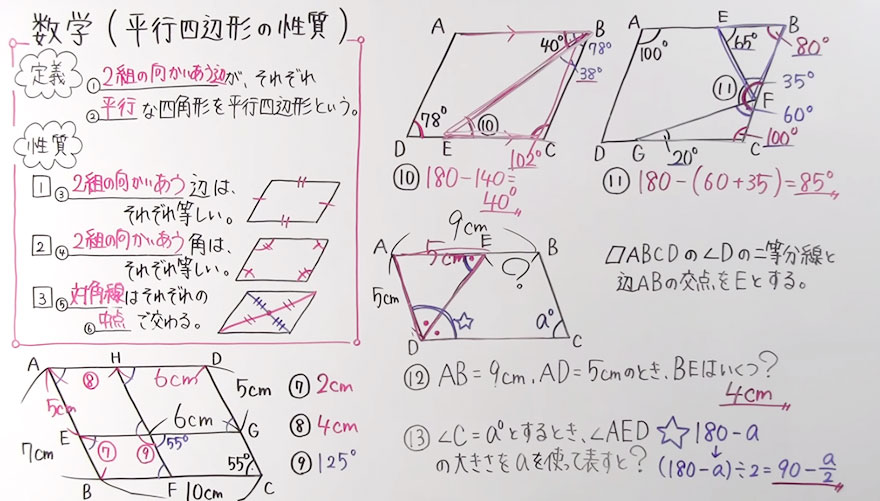 数学(平行四辺形の性質)
定義
① 2組の向かいあう辺が、それぞれ
② 平行な四角形を平行四辺形という。
性質
1 ③ 2組の向かいあう辺は、
それぞれ等しい。
2 ④ 2組の向かいあう角は、
それぞれ等しい。
3 ⑤ 対角線はそれぞれの
⑥ 中点で交わる。
A H D
⑧ 6cm
5cm 5cm
6cm
E G
7cm ⑦ ⑨ 55°
55°
B F C
10cm
⑦ 2cm
⑧ 4cm
⑨ 125°
A B
40° 78°
38°
78° ⑩
D E C
102°
⑩ 180-140=
40°
A E B
100° 65° 80°
35°
⑪ F
60°
100°
D G 20° C
⑪ 180-(60+35)=85°
9cm
A E B
5cm ?
5cm
☆ a°
D C
▱ABCDの∠Dの二等分線と
辺ABの交点をEとする。
⑫ AB=9cm、AD=5cmのとき、BEはいくつ?
4cm
⑬ ∠C=a°とするとき、∠AED ☆180-a
の大きさをaを使って表すと? (180-a)÷2=90-a/2